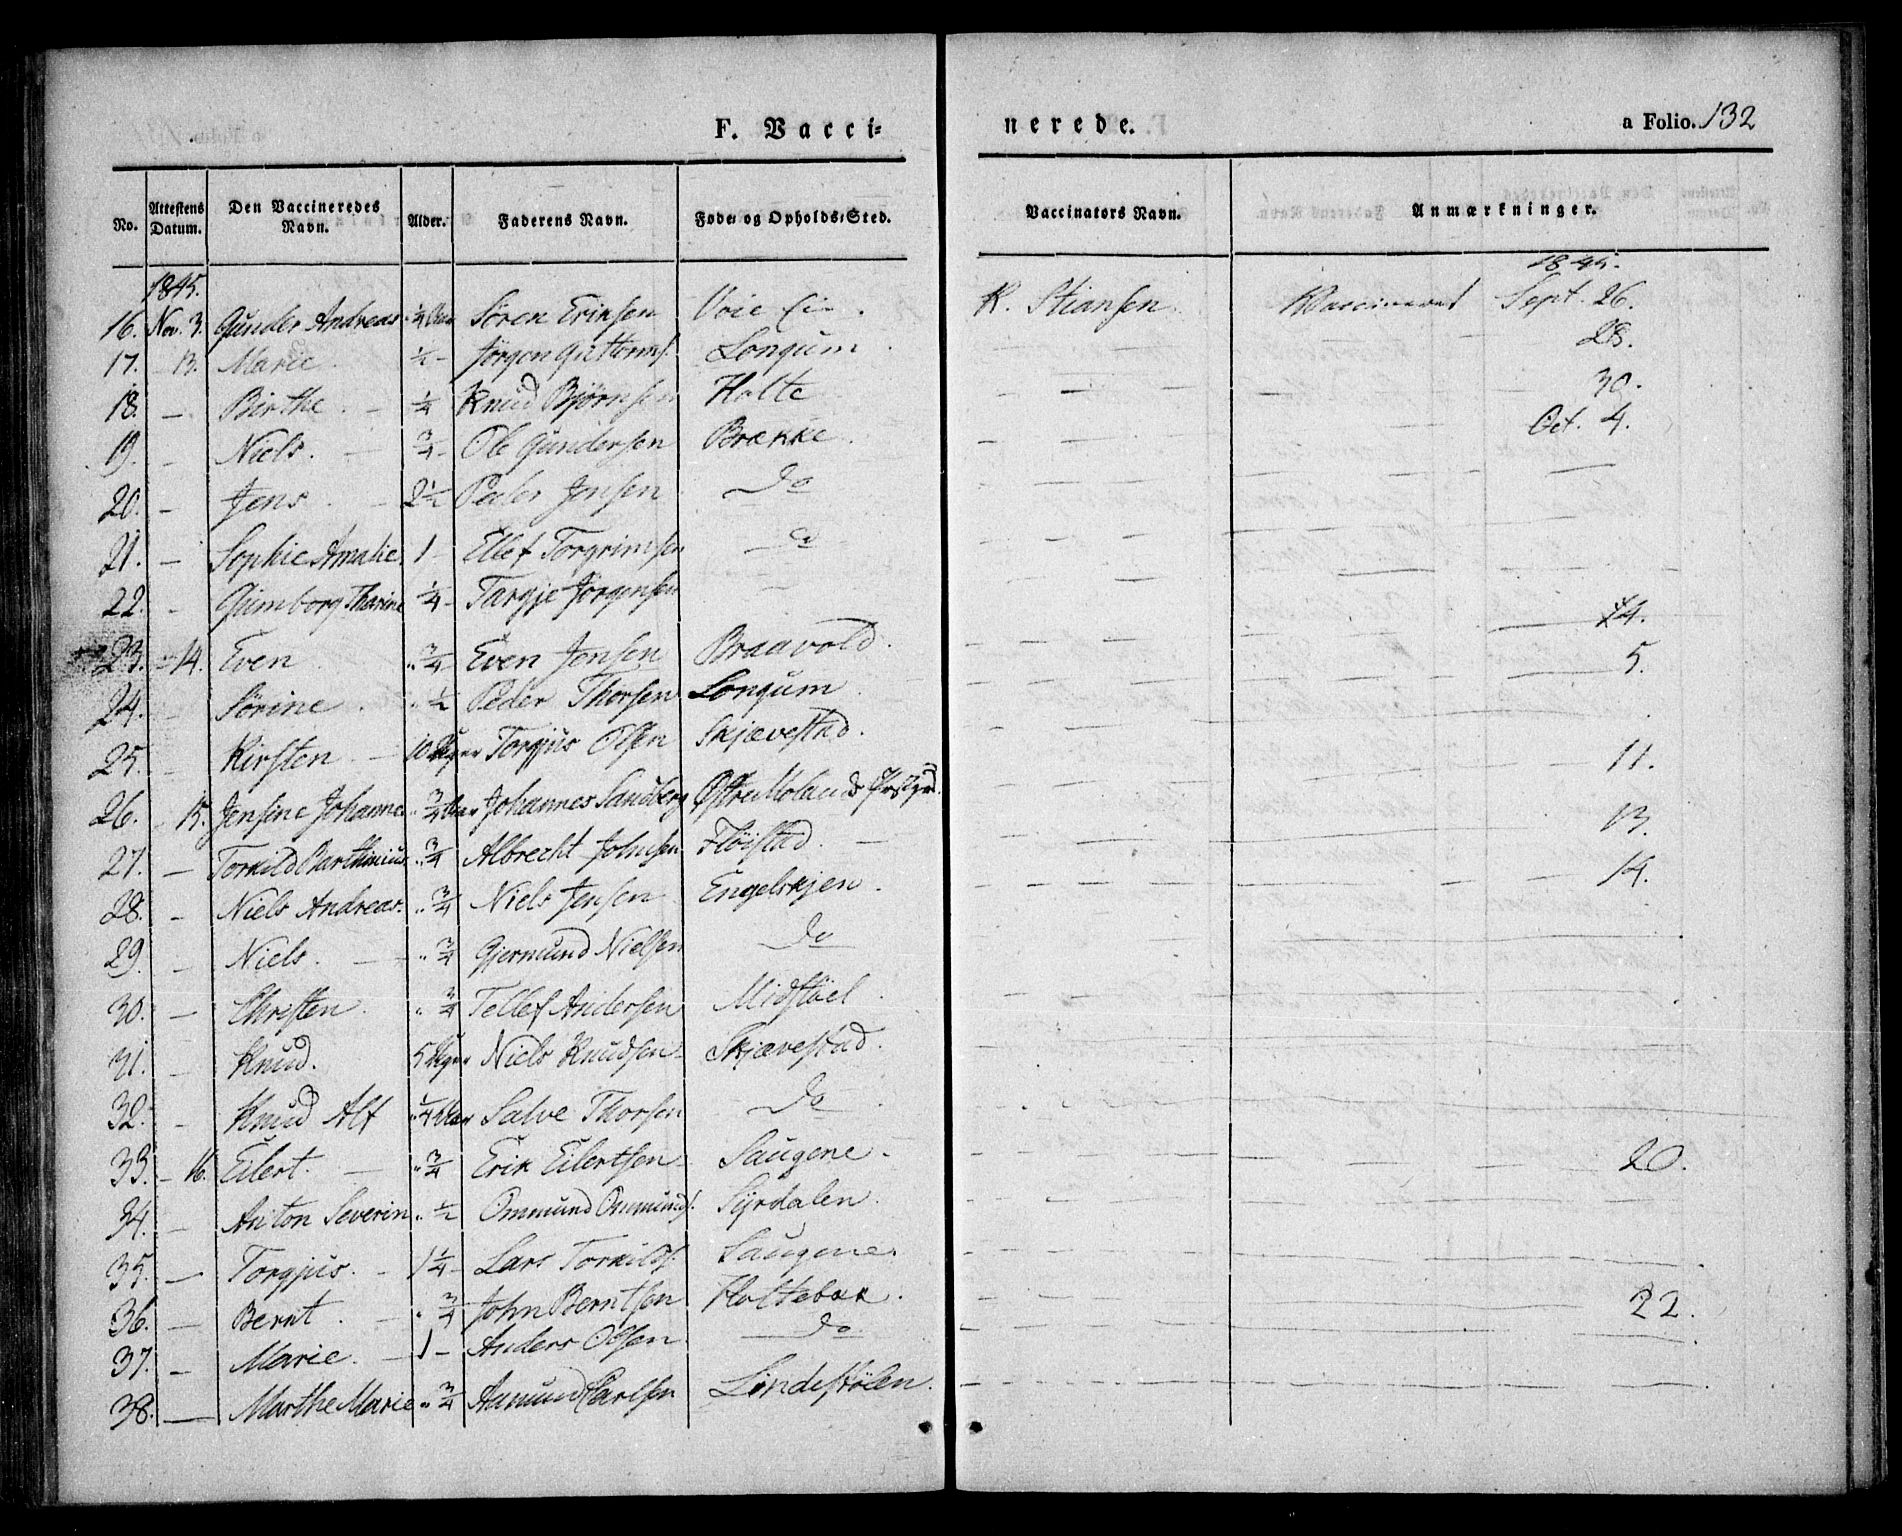 F. Vacci-nerede. a Folio. 132
No. Attestens Datum. Den Vaccineredes Navn. Alder. Faderens Navn. Føde- og Opholds-Sted. Vaccinators Navn. Anmærkninger.
1845. 1845.
16. Nov. 3. Gunder Andreas 1/4 Aar Sören Eriksen Voie K. Stiansen Vaccineret Sept. 26.
17. – 13. Marie. 1/2 – Jörgen Guttorms. Longum – – – 28.
18. – Birthe. – 1/4 Knud Björnsen Holte – – – 30.
19. – Niels. – 3/4 – Ole Gundersen Brække. – – – Oct. 4.
20. – Jens. – 2 1/2 Peder Jensen do
21. – Sophie Amalie 1 – Ellef Torgrimsen do
22. – Gumborg Tharine 1/4 – Targje Jörgensen –
23. – 14. Even " 3/4 Even Jensen Braavold. 4.
24. – Sörine. " 1/2 Peder Thorsen Longum 5.
25. – Kirsten. – 10 Uger Torgjus Olsen Skjævestad.
26. – 15. Jensine Johanne " 3/4 Aar Johannes Sandberg Østre Moland Præstgrd. 11.
27. – Torkild Barthinius " 3/4 Albrecht Johnsen Flöistad. – 13.
28. – Niels Andreas. " 3/4 Niels Jensen Engelskjen. 14.
29. – Niels. – " 3/4 Gjermund Nielsen do
30. – Christen. " 3/4 Tellef Andersen Midstöel.
31. – Knud. 5 Uger Niels Knudsen – Skjævestad.
32. – Knud Alf " 1/4 Aar Salve Thorsen do
33. – 16. Eilert. – " 3/4 Erik Eilertsen – Saugene – 20.
34. – Anton Severin " 1/2 Ommund Ommunds. Syrdalen.
35. – Torgjus. – 1 1/4 – Lars Torkilds. Saugene.
36. – Bernt. – " 3/4 John Berntsen Holtebak. 22.
37. – Marie. – 1 – Anders Olsen. do
38. – Marthe Marie " 3/4 Aamund Carlsen Lindestölen.